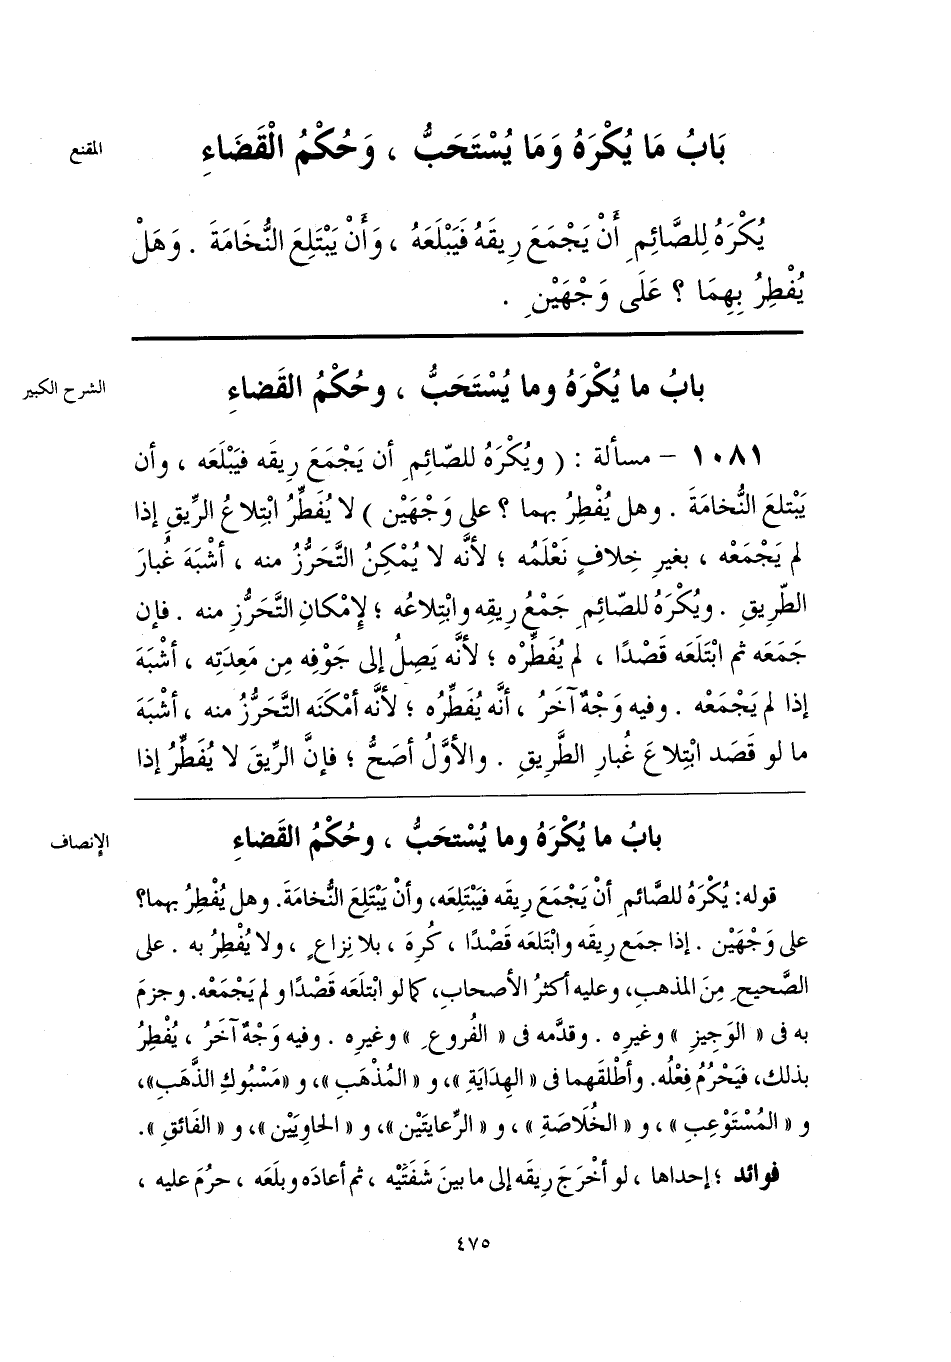 المقنع
بَابُ مَا يُكْرَهُ وَمَا يُسْتَحَبُّ ، وَحُكْمُ الْقَضَاءِ
يُكْرَهُ لِلصَّائِمِ أَنْ يَجْمَعَ رِيقَهُ فَيَبْلَعَهُ ، وَأَنْ يَبْتَلِعَ النُّخَامَةَ . وَهَلْ
يُفْطِرُ بِهِمَا ؟ عَلَى وَجْهَيْنِ .
الشرح الكبير
بابُ ما يُكْرَهُ وما يُسْتَحَبُّ ، وحُكْمُ القَضاءِ
١٠٨١ – مسألة : ( ويُكْرَهُ للصّائِمِ أن يَجْمَعَ رِيقَه فيَبْلَعَه ، وأن
يَبْتلعَ النُّخامَةَ . وهل يُفْطِرُ بهما ؟ على وَجْهَيْن ) لا يُفَطِّرُ ابْتِلاعُ الرِّيقِ إذا
لم يَجْمَعْه ، بغيرِ خِلافٍ نَعْلَمُه ؛ لأنَّه لا يُمْكِنُ التَّحَرُّزُ منه ، أشْبَهَ غُبارَ
الطَّرِيقِ . ويُكْرَهُ للصّائمِ جَمْعُ رِيقِه وابْتِلاعُه ؛ لإمْكانِ التَّحَرُّزِ منه . فإن
جَمَعَه ثم ابْتَلَعَه قَصْدًا ، لم يُفَطِّرْه ؛ لأنَّه يَصِلُ إلى جَوْفِه مِن مَعِدَتِه ، أشْبَهَ
إذا لم يَجْمَعْه . وفيه وَجْهٌ آخَرُ ، أنَّه يُفَطِّرُه ؛ لأنَّه أمْكَنَه التَّحَرُّزُ منه ، أشْبَهَ
ما لو قَصَد ابْتِلاعَ غُبارِ الطَّرِيقِ . والأوَّلُ أصَحُّ ؛ فإنَّ الرِّيقَ لا يُفَطِّرُ إذا
الإنصاف
بابُ ما يُكْرَهُ وما يُسْتحَبُّ ، وحُكْمُ القَضاءِ
قوله: يُكْرَهُ للصَّائمِ أنْ يَجْمَعَ رِيقَه فيَبْتَلِعَه، وأنْ يَبْتَلِعَ النُّخامَةَ. وهل يُفْطِرُ بهما؟
على وَجْهَيْن . إذا جمَع رِيقَه وابْتَلعَه قَصْدًا ، كُرِهَ ، بلا نِزاعٍ ، ولا يُفْطِرُ به . على
الصَّحيحِ مِنَ المذهبِ، وعليه أكثرُ الأصحابِ، كما لو ابْتَلَعَه قَصْدًا ولم يَجْمَعْه. وجزمَ
به فى « الوَجيزِ » وغيرِه . وقدَّمه فى « الفُروعِ » وغيرِه . وفيه وَجْهٌ آخَرُ ، يُفْطِرُ
بذلك، فيَحْرُمُ فِعْلُه. وأطْلَقَهما فى « الهِدَايَةِ »، و « المُذْهَبِ »، و «مَسْبُوكِ الذَّهَبِ»،
و « المُسْتَوْعِبِ » ، و « الخُلَاصَةِ » ، و « الرِّعايتَيْن »، و « الحاوِيَيْن »، و « الفَائقِ ».
فوائد ؛ إحداها ، لو أخْرَجَ رِيقَه إلى ما بينَ شَفَتَيْه ، ثم أعادَه وبلَعَه ، حرُمَ عليه ،
٤٧٥